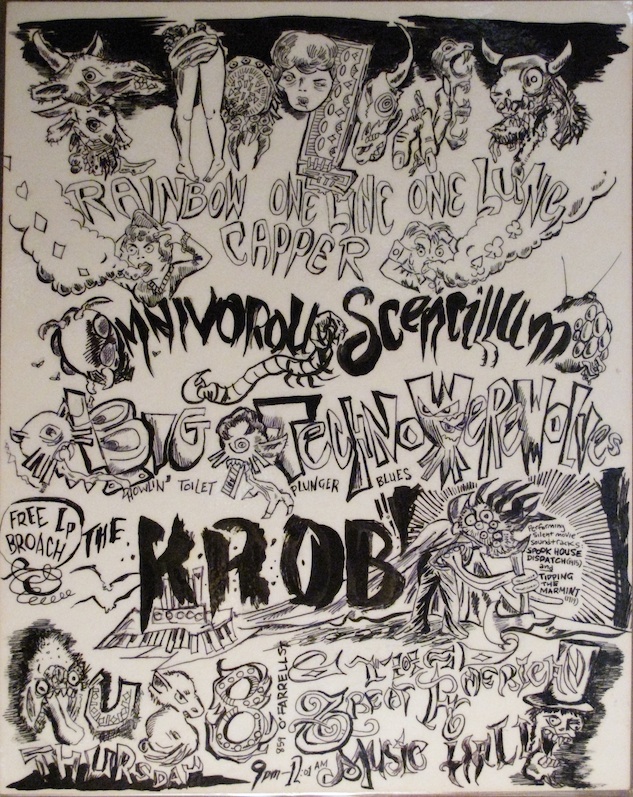 RAINBOW ONE LINE ONE LUNG
CAPPER
OMNIVOROUS SCENTILLUM
BIG TECHNO WEREWOLVES
HOWLIN' TOILET PLUNGER BLUES
FREE LP
BROACH
THE KROB
Performing
Silent movie
Soundtracks
SPOOK HOUSE
DISPATCH
and
TIPPING
THE
MARMINT
THURSDAY
859 O'FARRELL ST
9pm-12:01AM
GREAT AMERICAN
MUSIC HALL